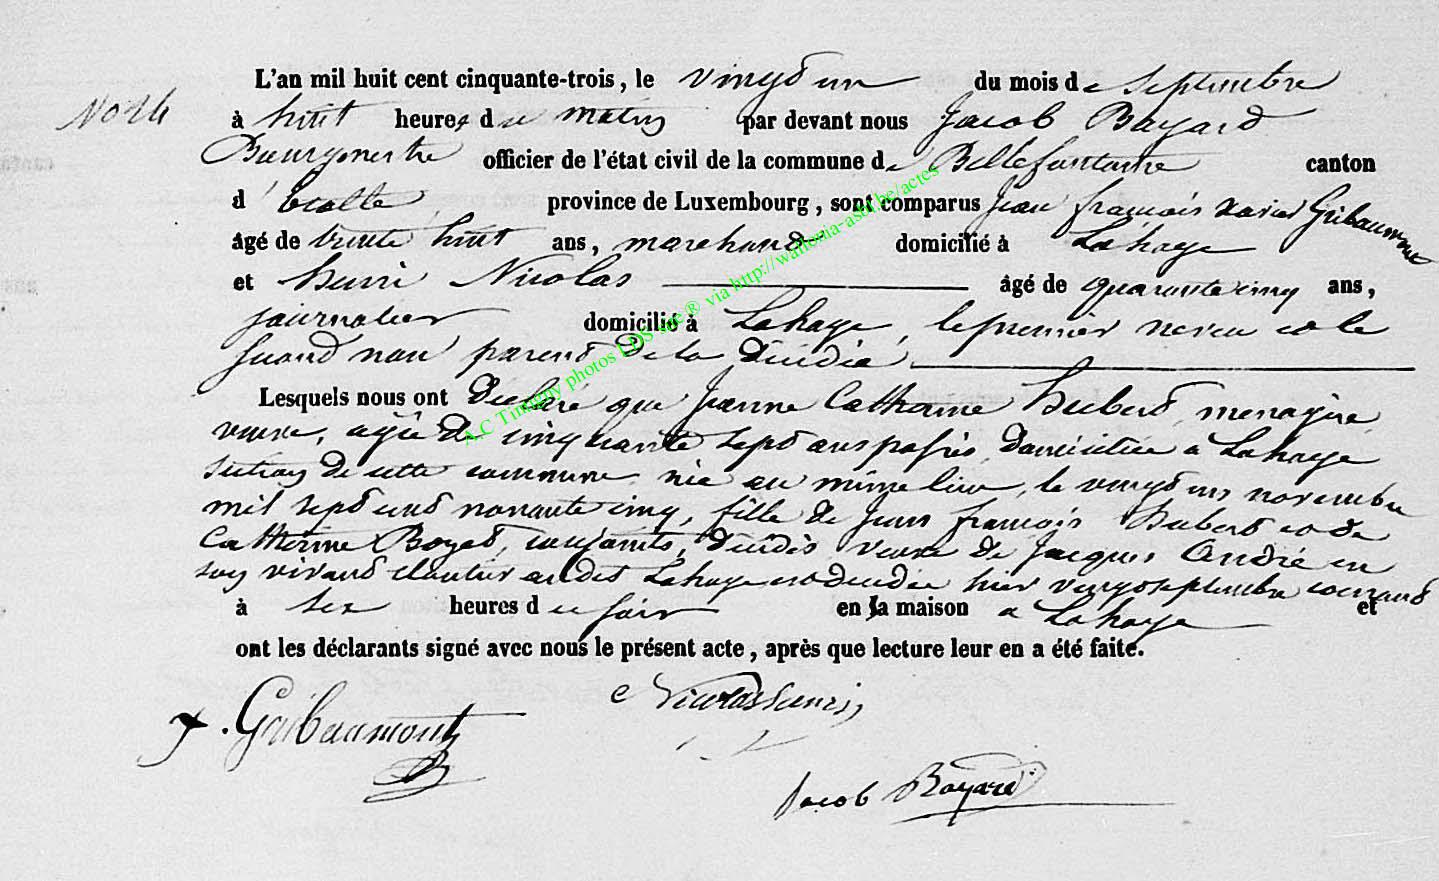 L'an mil huit cent cinquante-trois, le vingt un du mois de septembre
No 24
à huit heures du matin par devant nous Jacob Bayard
Bourgmestre officier de l'état civil de la commune de Bellefontaine canton
d'Etalle province de Luxembourg, sont comparus Jean françois xavier Gribaumont
âgé de trente huit ans, marchand domicilié à Lahage
et henri Nicolas âgé de quarante cinq ans,
journalier domicilié à Lahage, le premier neveu et le
second non parent de la décédée,
Lesquels nous ont déclaré que Jeanne Catherine hubert menagère
veuve, agée de cinquante sept ans passés, domiciliée a Lahage
section de cette commune, née au même lieu, le vingt un novembre
mil sept cent nonante cinq, fille de Jean françois hubert et de
Catherine Boyet, conjoints, décédés veuve de Jacques André en
son vivant cloutier audit Lahage est décédée hier vingt septembre courant
à six heures du soir en sa maison a Lahage et
ont les déclarants signé avec nous le présent acte, après que lecture leur en a été faite.
Nicolas henri
f. Gribaumont
Jacob Bayard
A.C Tintigny photos LDS ® via http://wallonia-asbl.be/actes